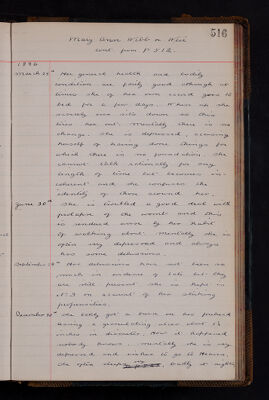 516
Mary Ann Webb or
cont. from P 512
1896
March 25th Her general health and bodily
condition are fairly good although at
times she of her own accord goes to
bed for a few days. When up she
usually sits down as this
tires her out. Mentally there is no
change. She is depressed, accusing
herself of having done things for
which there is no foundation. She
cannot talk rationally for any
length of time but becomes in-
coherent and she confuses the
identity of those around her.
June 30th She is troubled a good deal with
prolapse of the womb and this
is rendered worse by her habit
of walking about. Mentally she is
often very depressed and always
has some delusions.
September Her delusions have not been so
much in evidence of late but they
are still present. She is kept in
on account of her striking
propensities.
December She lately got a bruise on her forehead
having a granulating ulcer about 1½
inches in diameter. How it happened
nobody knows. Mentally she is very
depressed and wishes to go to Heaven,
She often sleeps badly at night